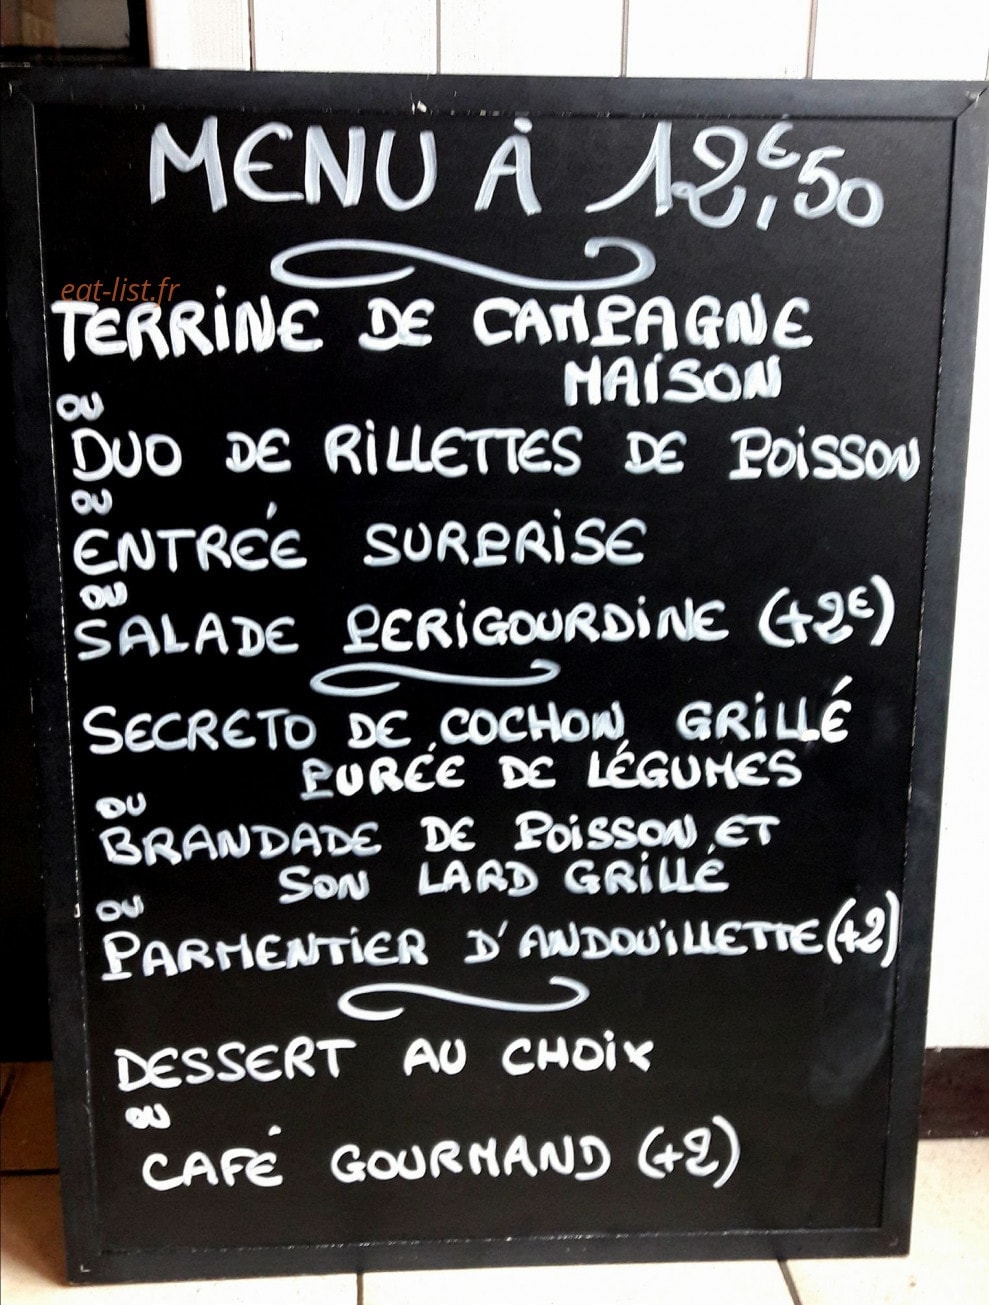 MENU À 12,€50
eat-list.fr
TERRINE DE CAMPAGNE
MAISON
OU
DUO DE RILLETTES DE POISSON
OU
ENTRÉE SURPRISE
OU
SALADE PERIGOURDINE (+2€)
SECRETO DE COCHON GRILLÉ
PURÉE DE LÉGUMES
OU
BRANDADE DE POISSON ET
SON LARD GRILLÉ
OU
PARMENTIER D'ANDOUILLETTE (+2)
DESSERT AU CHOIX
OU
CAFÉ GOURMAND (+2)